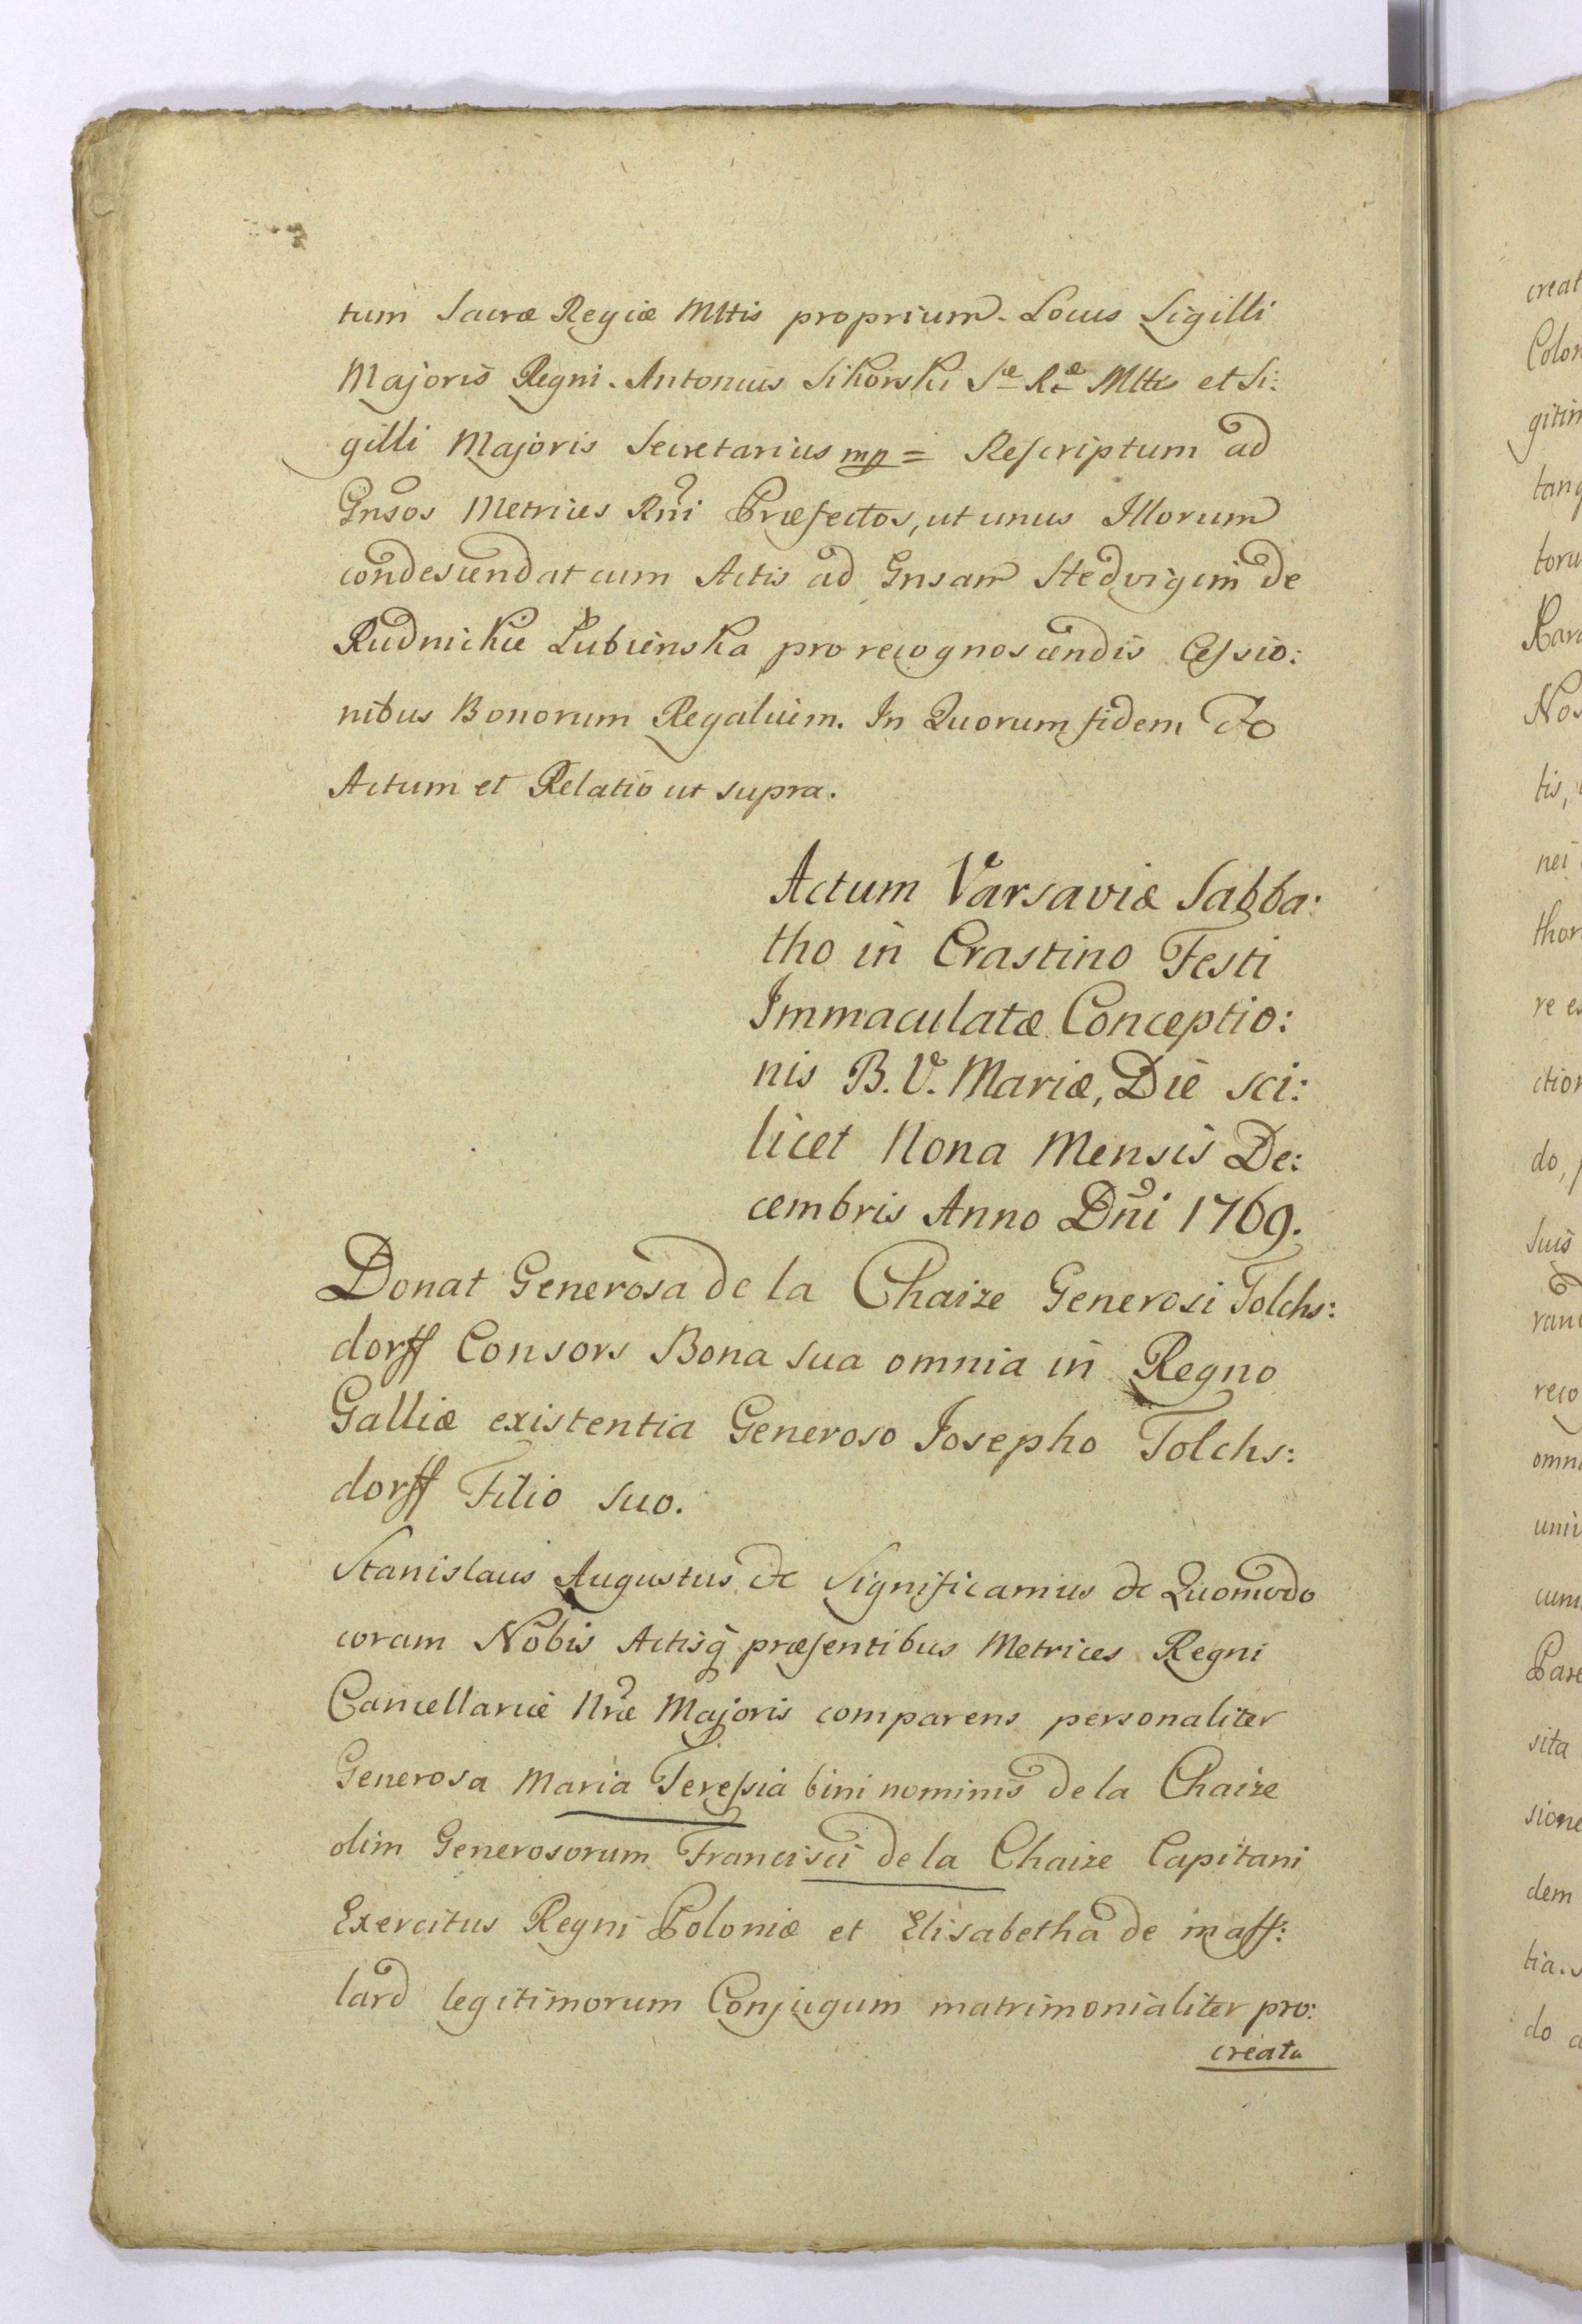 tum Sacræ Regiæ Mttis proprium. Locus Sigilli
Majoris Regni. Antonius Sikorski Sæ Ræ Mttis et Si:
gilli Majoris Secretarius mp = Rescriptum ad
Gnsos Metrices Rni Præfectos, ut unus Illorum
condescendat cum Actis ad Gnsam Hedvigem de
Rudnickie Lubienska pro recognoscendis Cessio:
nibus Bonorum Regalium. In Quorum fidem &c
Actum et Relatio ut supra.
Actum Varsaviæ Sabba:
tho in Crastino Festi
Immaculatæ Conceptio:
nis B. V. Mariæ, Die sci:
licet Nona Mensis De:
cembris Anno Dni 1769.
Donat Generosa de la Chaize Generosi Tolchs:
dorff Consors Bona sua omnia in Regno
Galliæ existentia Generoso Josepho Tolchs:
dorff Filio suo.
Stanislaus Augustus &c Significamus &c Quomodo
coram Nobis Actisq præsentibus Metrices Regni
Cancellariæ Nræ Majoris comparens personaliter
Generosa Maria Teressia bini nominis de la Chaize
olim Generosorum Francisci de la Chaize Capitani
Exercitus Regni Poloniæ et Elisabetha de maff:
lard legitimorum Conjugum matrimonialiter pro:
creata
creat
Colon
gitim
tang
toru
Nos
tis,
nei
thor
re es
ction
do,
suis
reco
omni
uni
cum
sita
sione
dem
tia.
do